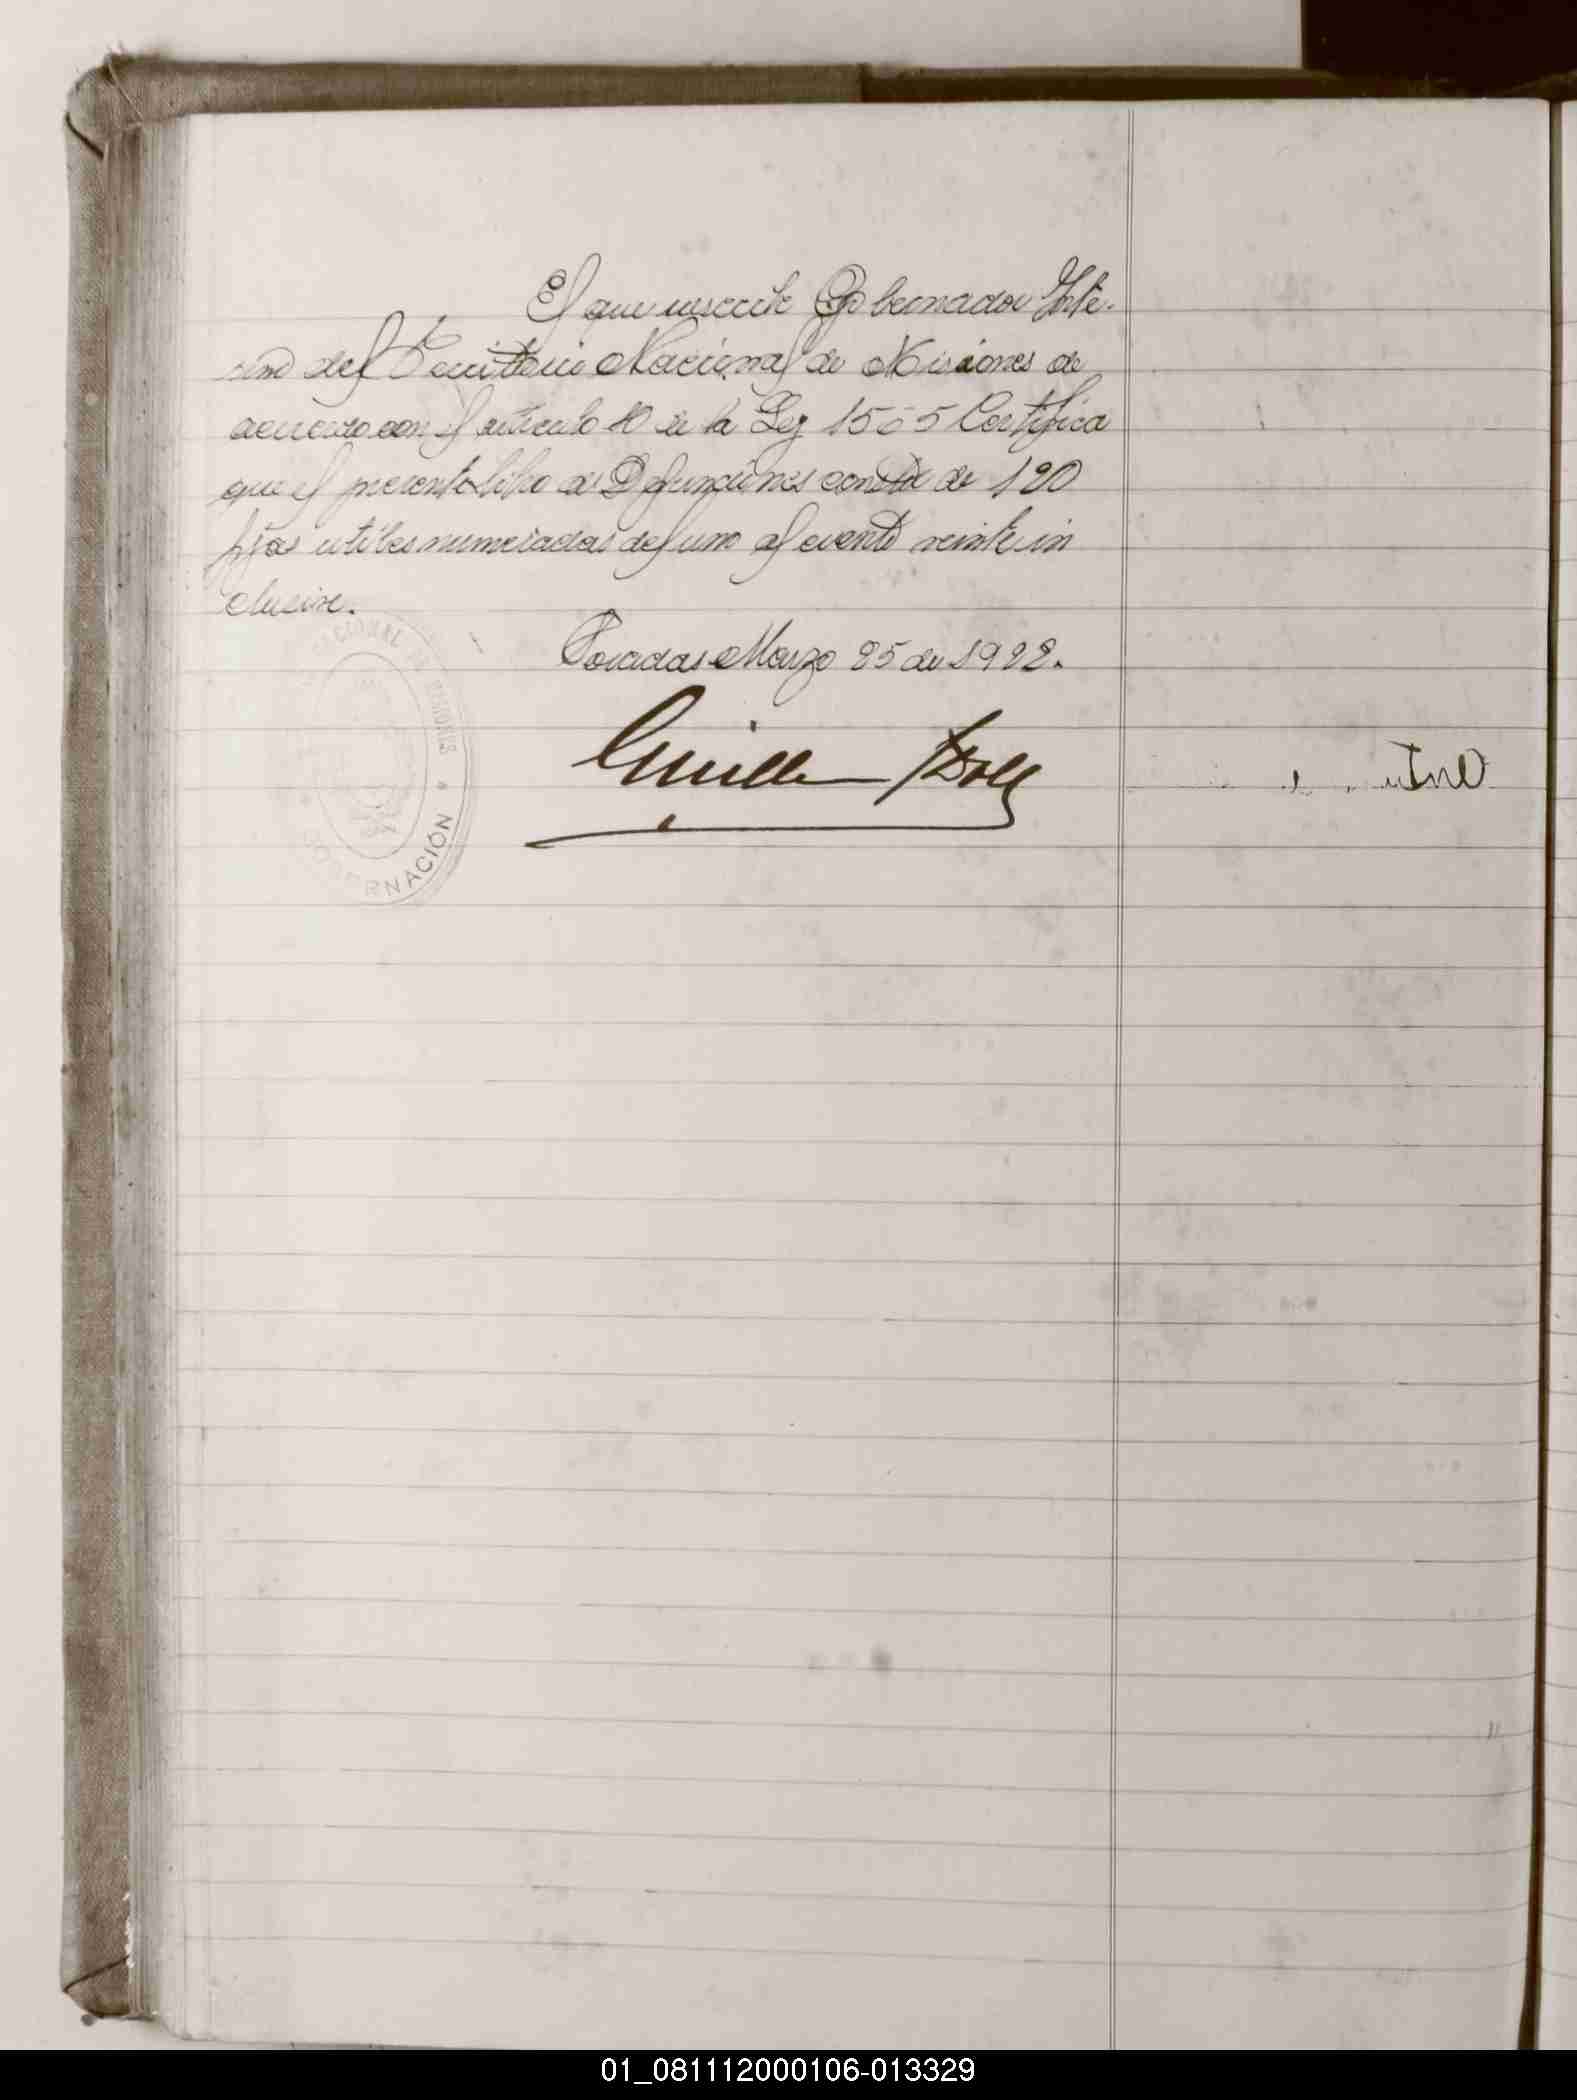 El que suscribe Gobernador Inte-
rino del Territorio Nacional de Misiones de
acuerdo con el articulo 10 de la Ley 1565 Certifica
que el presente libro de Defunciones consta de 120
fojas utiles numeradas del uno al ciento veinte in
clusive.
Posadas Marzo 25 de 1922.
NACIONAL DE MISIONES
GOBERNACIÓN
01_081112000106-013329